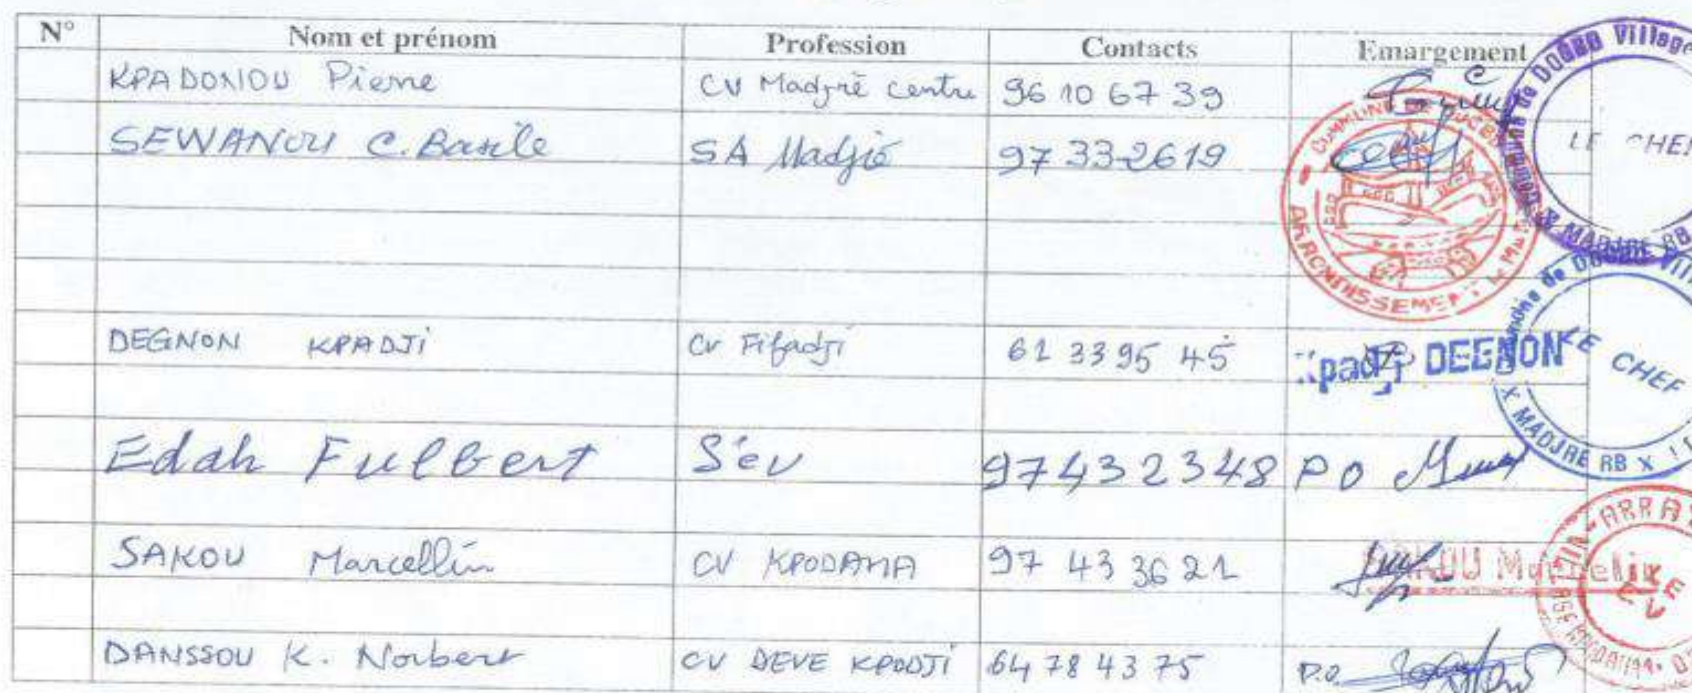 N° Nom et prénom Profession Contacts Emargement
KPADONOU Pierre CV Madjrè Centre 96 10 67 39
SEWANOU C. Basile SA Madjrè 97 33 26 19
DEGNON KPADJI CV Fifadji 61 33 95 45 Kpadji DEGNON
Edah Fulbert Sèv 97432348 PO
SAKOU Marcellin CV KPODAHA 97 43 36 21 SAKOU Marcelin
DANSSOU K. Norbert CV DEVE KPODJI 64 78 43 75 P.O
ARRONDISSEMENT
Village
LE CHEF
MADJRE RB
LE CHEF
X MADJRE RB X
LE
CV